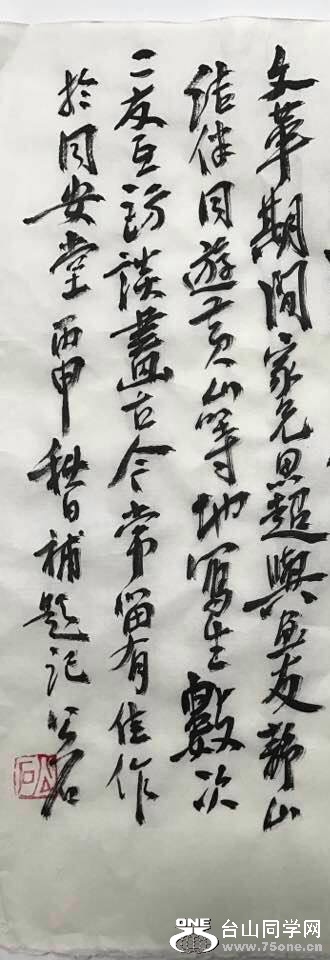 文革期間家兄思超與魚友靜山
結伴同遊黃山等地寫生數次
二友互訪談畫古今常留有佳作
於同安堂 丙申秋日補題記 公石
公石
ONE 台山同学网
www.75one.cn